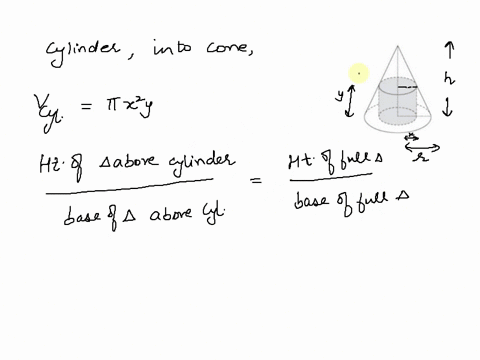 cylinder, into cone,
V cyl. = πx²y
Ht. of Δ above cylinder / base of Δ above cyl. = Ht. of full Δ / base of full Δ
y
h
x
r